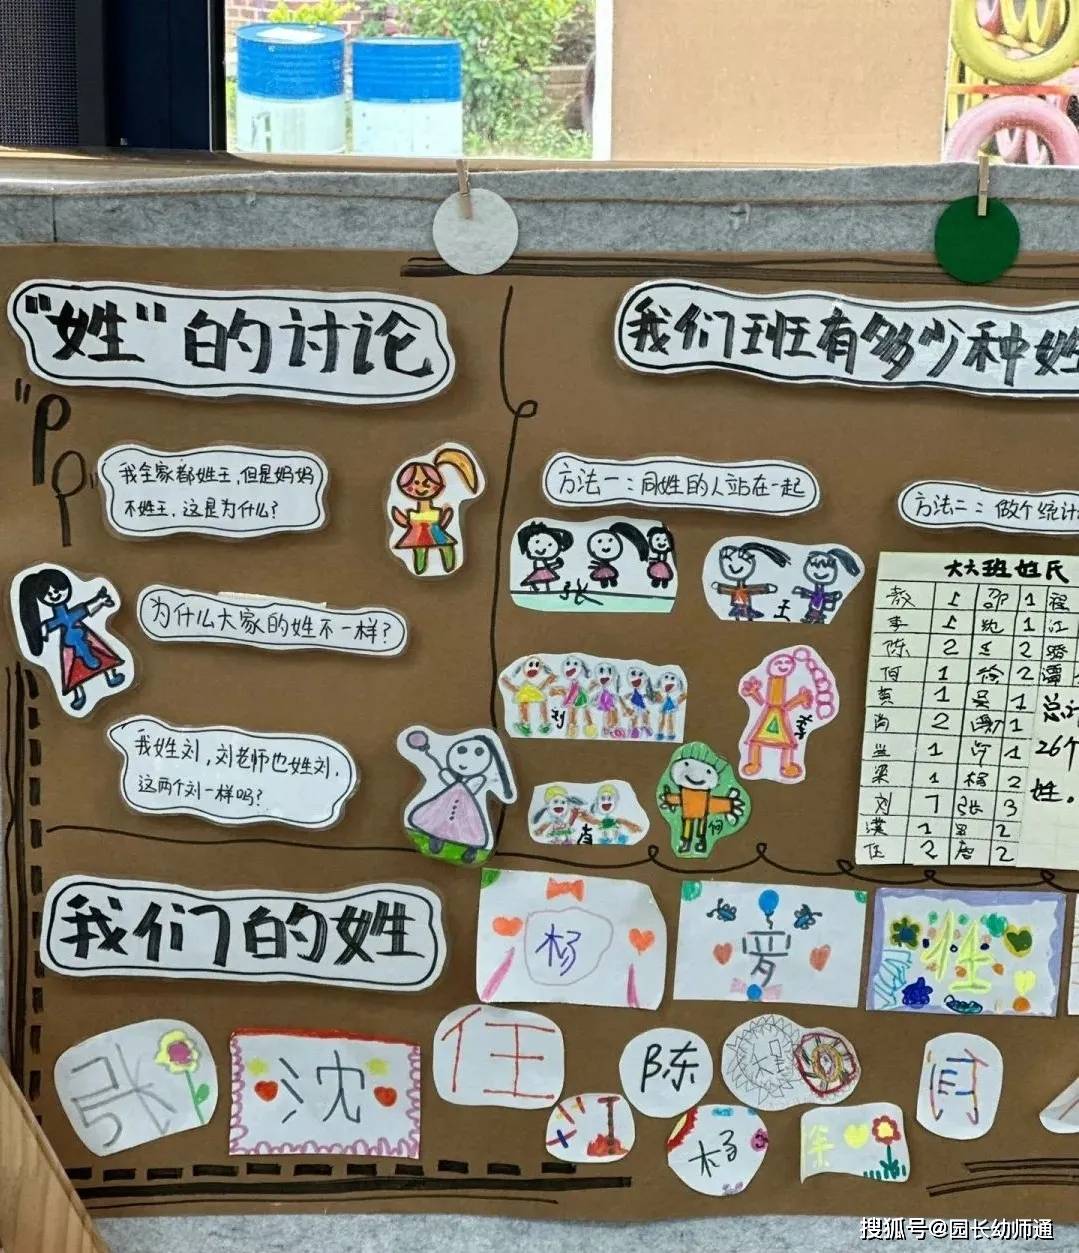 "姓"的讨论
我全家都姓王,但是妈妈
不姓王,这是为什么?
为什么大家的姓不一样?
我姓刘,刘老师也姓刘,
这两个刘一样吗?
我们班有多少种姓
方法一:同姓的人站在一起
张
王
刘
李
何
方法二:做个统计
大六班姓氏
邵 1 程
李 1 沈 1 江
陈 2 王 2
何 1 徐 2 谭
黄 1 吴 1
尚 2 1
兰 1 许 1
梁 1 杨 2
刘 7 张 3
1 2
任 2 唐 2
总计
26个
姓。
我们的姓
杨
罗
张
沈
任
江
陈
杨
徐